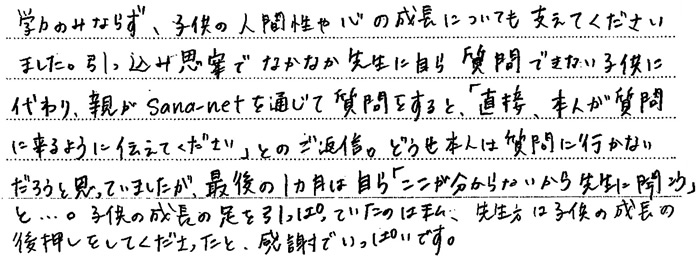 学力のみならず、子供の人間性や心の成長についても支えてください
ました。引っ込み思案でなかなか先生に自ら質問できない子供に
代わり、親がsana-netを通じて質問をすると、「直接、本人が質問
に来るように伝えてください」とのご返信。どうせ本人は質問に行かない
だろうと思っていましたが、最後の1カ月は自ら「ここが分からないから先生に聞こう」
と…。子供の成長の足を引っぱっていたのは私、先生方は子供の成長の
後押しをしてくださったと、感謝でいっぱいです。